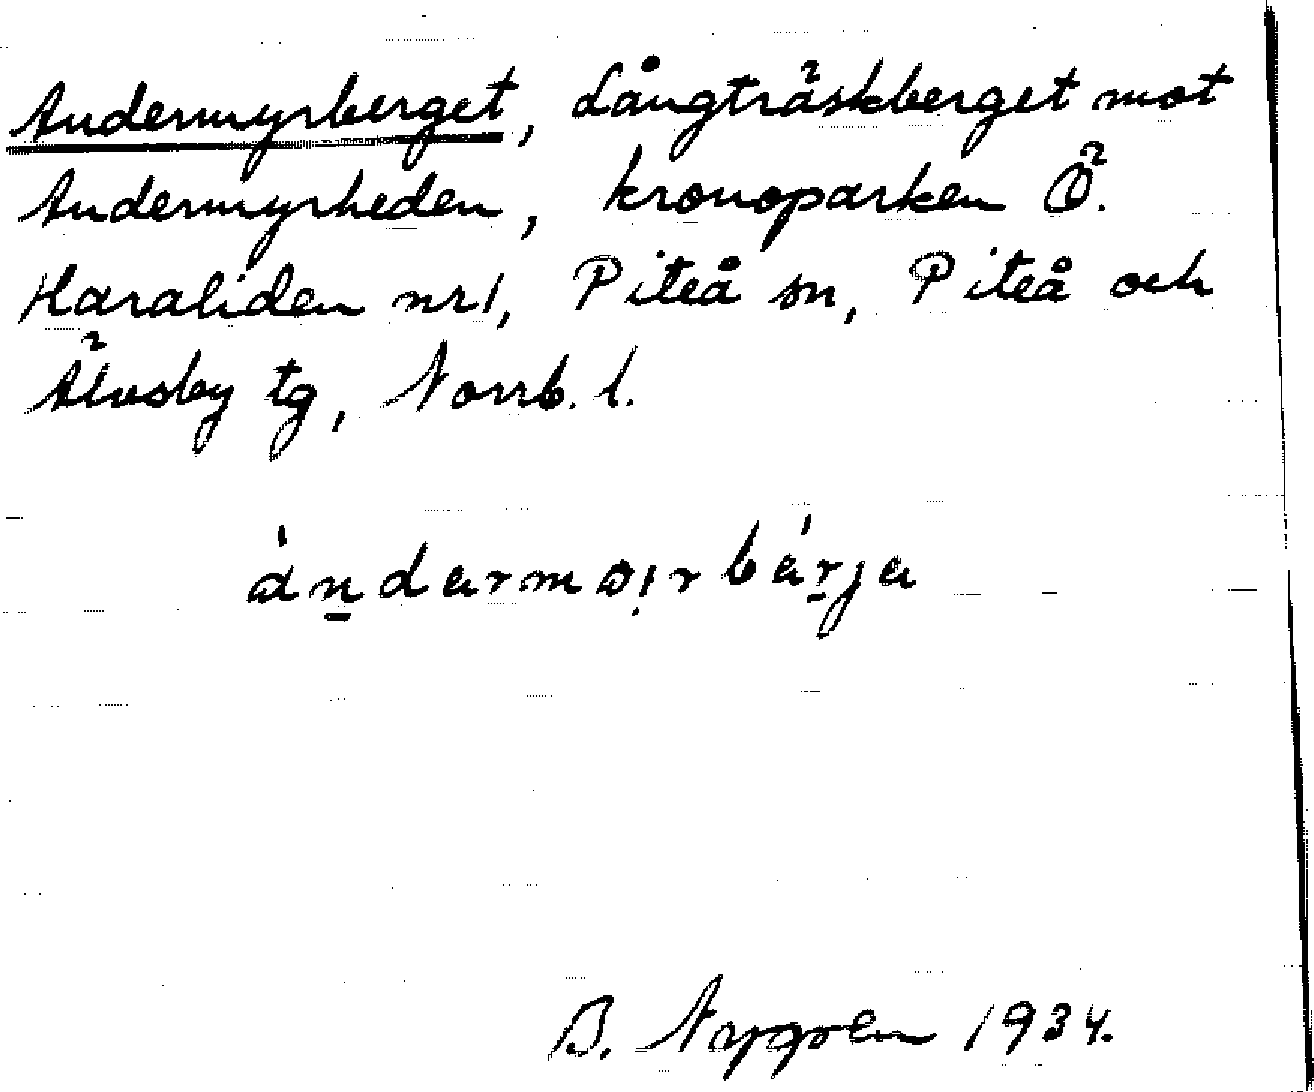 Andermyrberget, Långträskberget mot
Andermyrheden, kronoparken Ö.
Haraliden nr 1, Piteå sn, Piteå och
Älvsby tg, Norrb. l.
àn̠darmoi̩rbár̠ja
B. Nygren 1934.